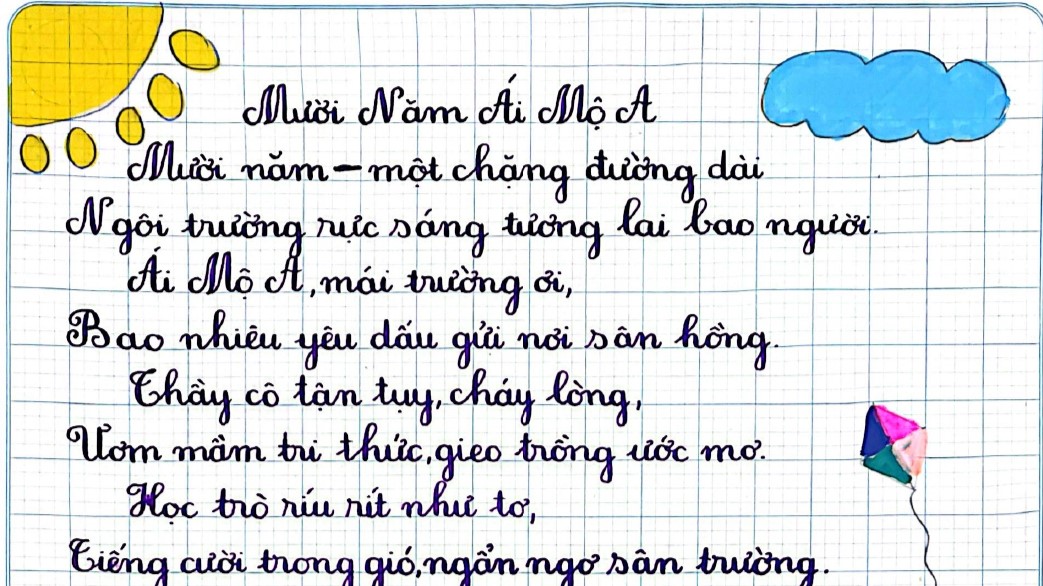 Mười Năm Ái Mộ A
Mười năm – một chặng đường dài
Ngôi trường rực sáng tương lai bao người.
Ái Mộ A, mái trường ơi,
Bao nhiêu yêu dấu gửi nơi sân hồng.
Thầy cô tận tụy, cháy lòng,
Ươm mầm tri thức, gieo trồng ước mơ.
Học trò ríu rít như tơ,
Tiếng cười trong gió, ngẩn ngơ sân trường.